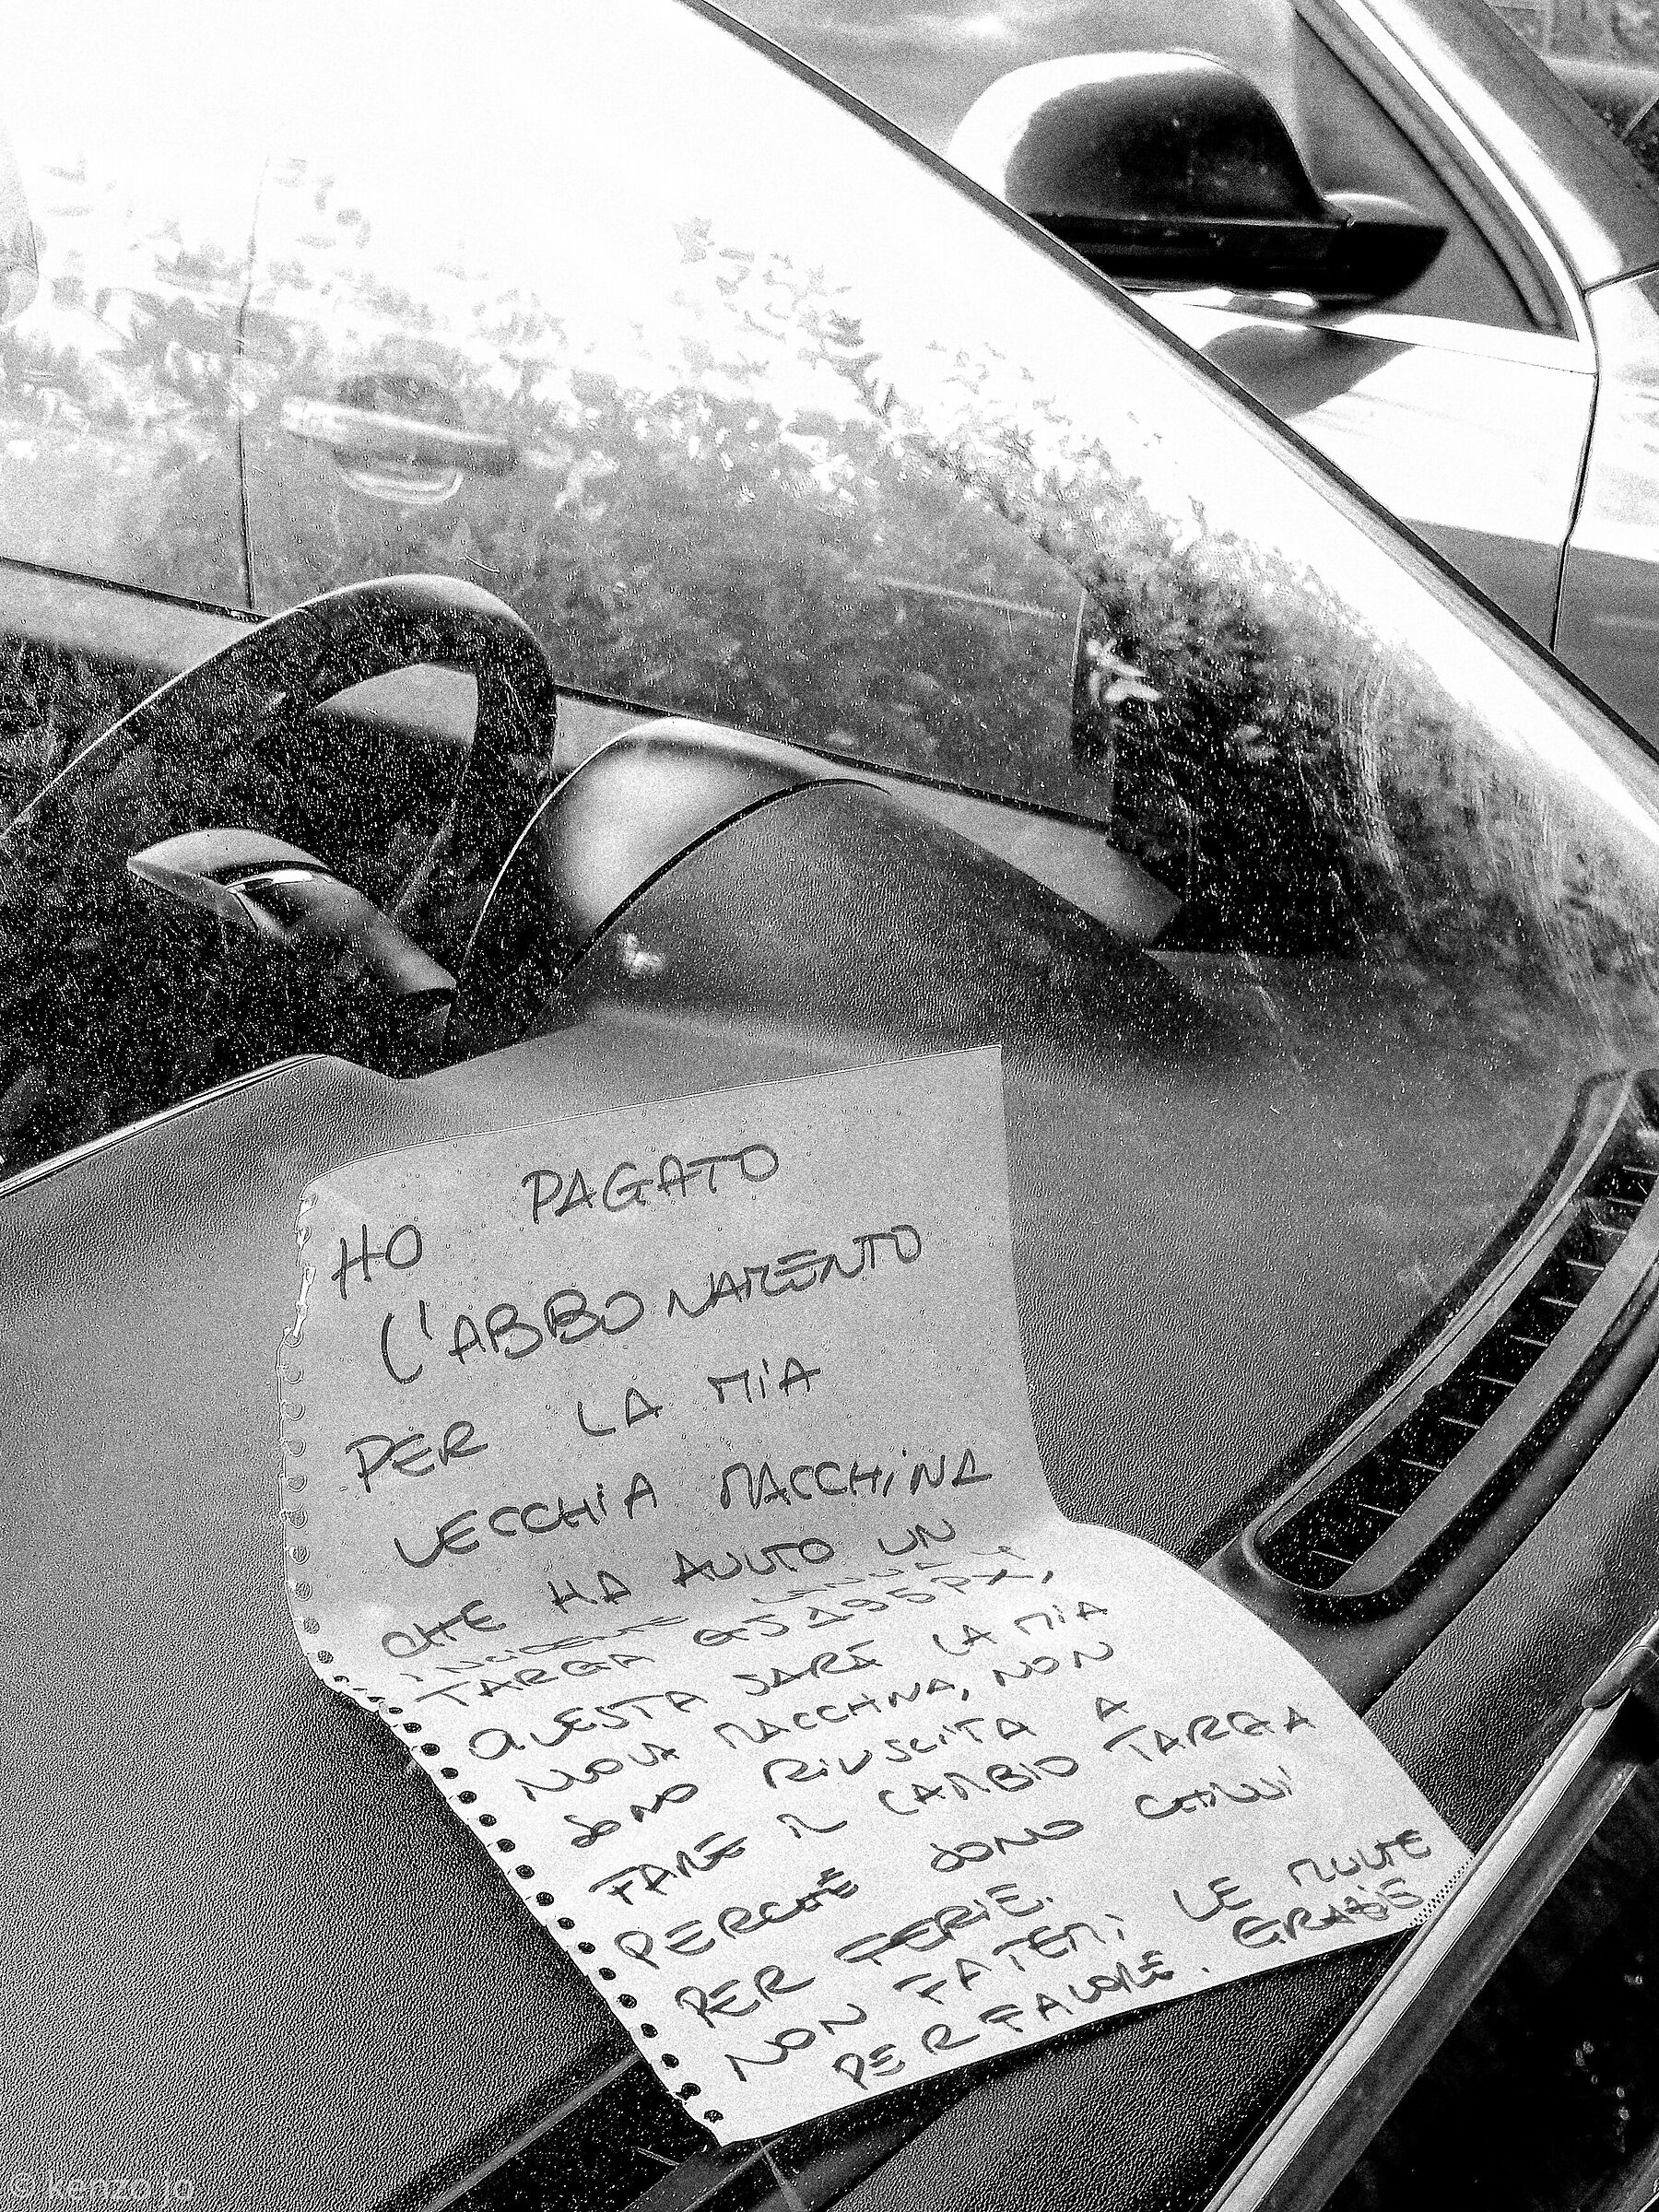 HO PAGATO
L'ABBONAMENTO
PER LA MIA
VECCHIA MACCHINA
CHE HA AVUTO UN
INCIDENTE
TARGA GJ195PX,
QUESTA SARÀ LA MIA
NUOVA MACCHINA, NON
SONO RIUSCITA A
FARE IL CAMBIO TARGA
PERCHÉ SONO CHIUSI
PER FERIE.
NON FATEMI LE MULTE
PER FAVORE. GRAZIE
© kenzo.jo